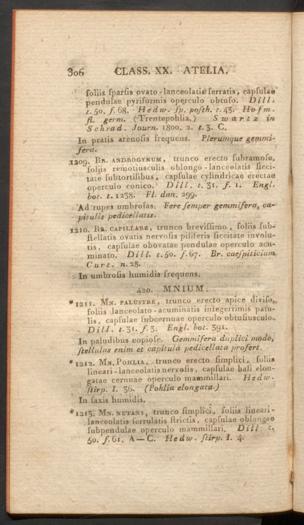 306 CLASS. XX. ATELIA.
foliis ſparſis ovato-lanceolatis ſerratis, capſulae
pendulae pyriformis operculo obtuſo. Dill.
t. 50. f. 68. Hedw. ſp. poſth. t. 45. Hofm.
fl. germ. (Trentepohlia.) Swartz in
Schrad. Journ. 1800. 2. t. 3. C.
In pratis arenoſis frequens. Plerumque gemmi-
fera.
1209. BR. ANDROGYNUM, trunco erecto ſubramoſo,
foliis remotiusculis oblongo-lanceolatis ſicci-
tate ſubtortilibus, capſulae cylindricae erectae
operculo conico. Dill. t. 31. f. 1. Engl.
bot. t. 1238. Fl. dan. 299.
Ad rupes umbroſas. Fere ſemper gemmifera, ca-
pitulis pedicellatis.
1210. BR. CAPILLARE, trunco breviſſimo, foliis ſub-
ſtellatis ovatis nervoſis piliferis ſiccitate involu-
tis, capſulae obovatae pendulae operculo acu-
minato. Dill. t. 50. f. 67. Br. caeſpiticium
Curt. n. 28.
In umbroſis humidis frequens.
420. MNIUM.
*1211. MN. PALUSTRE, trunco erecto apice diviſo,
foliis lanceolato-acuminatis integerrimis patu-
lis, capſulae ſubcernuae operculo obtuſiusculo.
Dill. t. 31. f. 3. Engl. bot. 391.
In paludibus copioſe. Gemmifera duplici modo,
ſtellulas enim et capitula pedicellata profert.
*1212. MN. POHLIA, trunco erecto ſimplici, foliis
lineari-lanceolatis nervoſis, capſulae baſi elon-
gatae cernuae operculo mammillari. Hedw.
ſtirp. I. 36. (Pohlia elongata.)
In ſaxis humidis.
*1213. MN. NUTANS, trunco ſimplici, foliis lineari-
lanceolatis ſerrulatis ſtrictis, capſulae oblongae
ſubpendulae operculo mammillari. Dill. t.
50. f. 61. A—C. Hedw. ſtirp. I. 4.